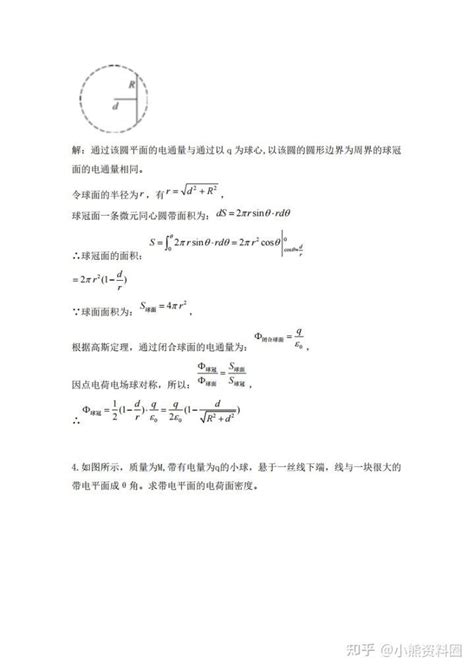 R
d
解：通过该圆平面的电通量与通过以 q 为球心,以该圆的圆形边界为周界的球冠
面的电通量相同。
令球面的半径为 r，有 r = √(d² + R²)，
球冠面一条微元同心圆带面积为：dS = 2πr sin θ · rdθ
∴球冠面的面积：S = ∫₀^θ 2πr sin θ · rdθ = 2πr² cos θ |⁰_{cosθ=d/r}
= 2πr²(1 − d/r)
∵球面面积为：S球面 = 4πr²，
根据高斯定理，通过闭合球面的电通量为：Φ闭合球面 = q/ε₀，
因点电荷电场球对称，所以：Φ球冠/Φ球面 = S球面/S球冠，
∴ Φ球冠 = 1/2(1 − d/r) · q/ε₀ = q/2ε₀(1 − d/√(R² + d²))
4.如图所示，质量为M,带有电量为q的小球，悬于一丝线下端，线与一块很大的
带电平面成 θ 角。求带电平面的电荷面密度。
知乎 @小熊资料圈